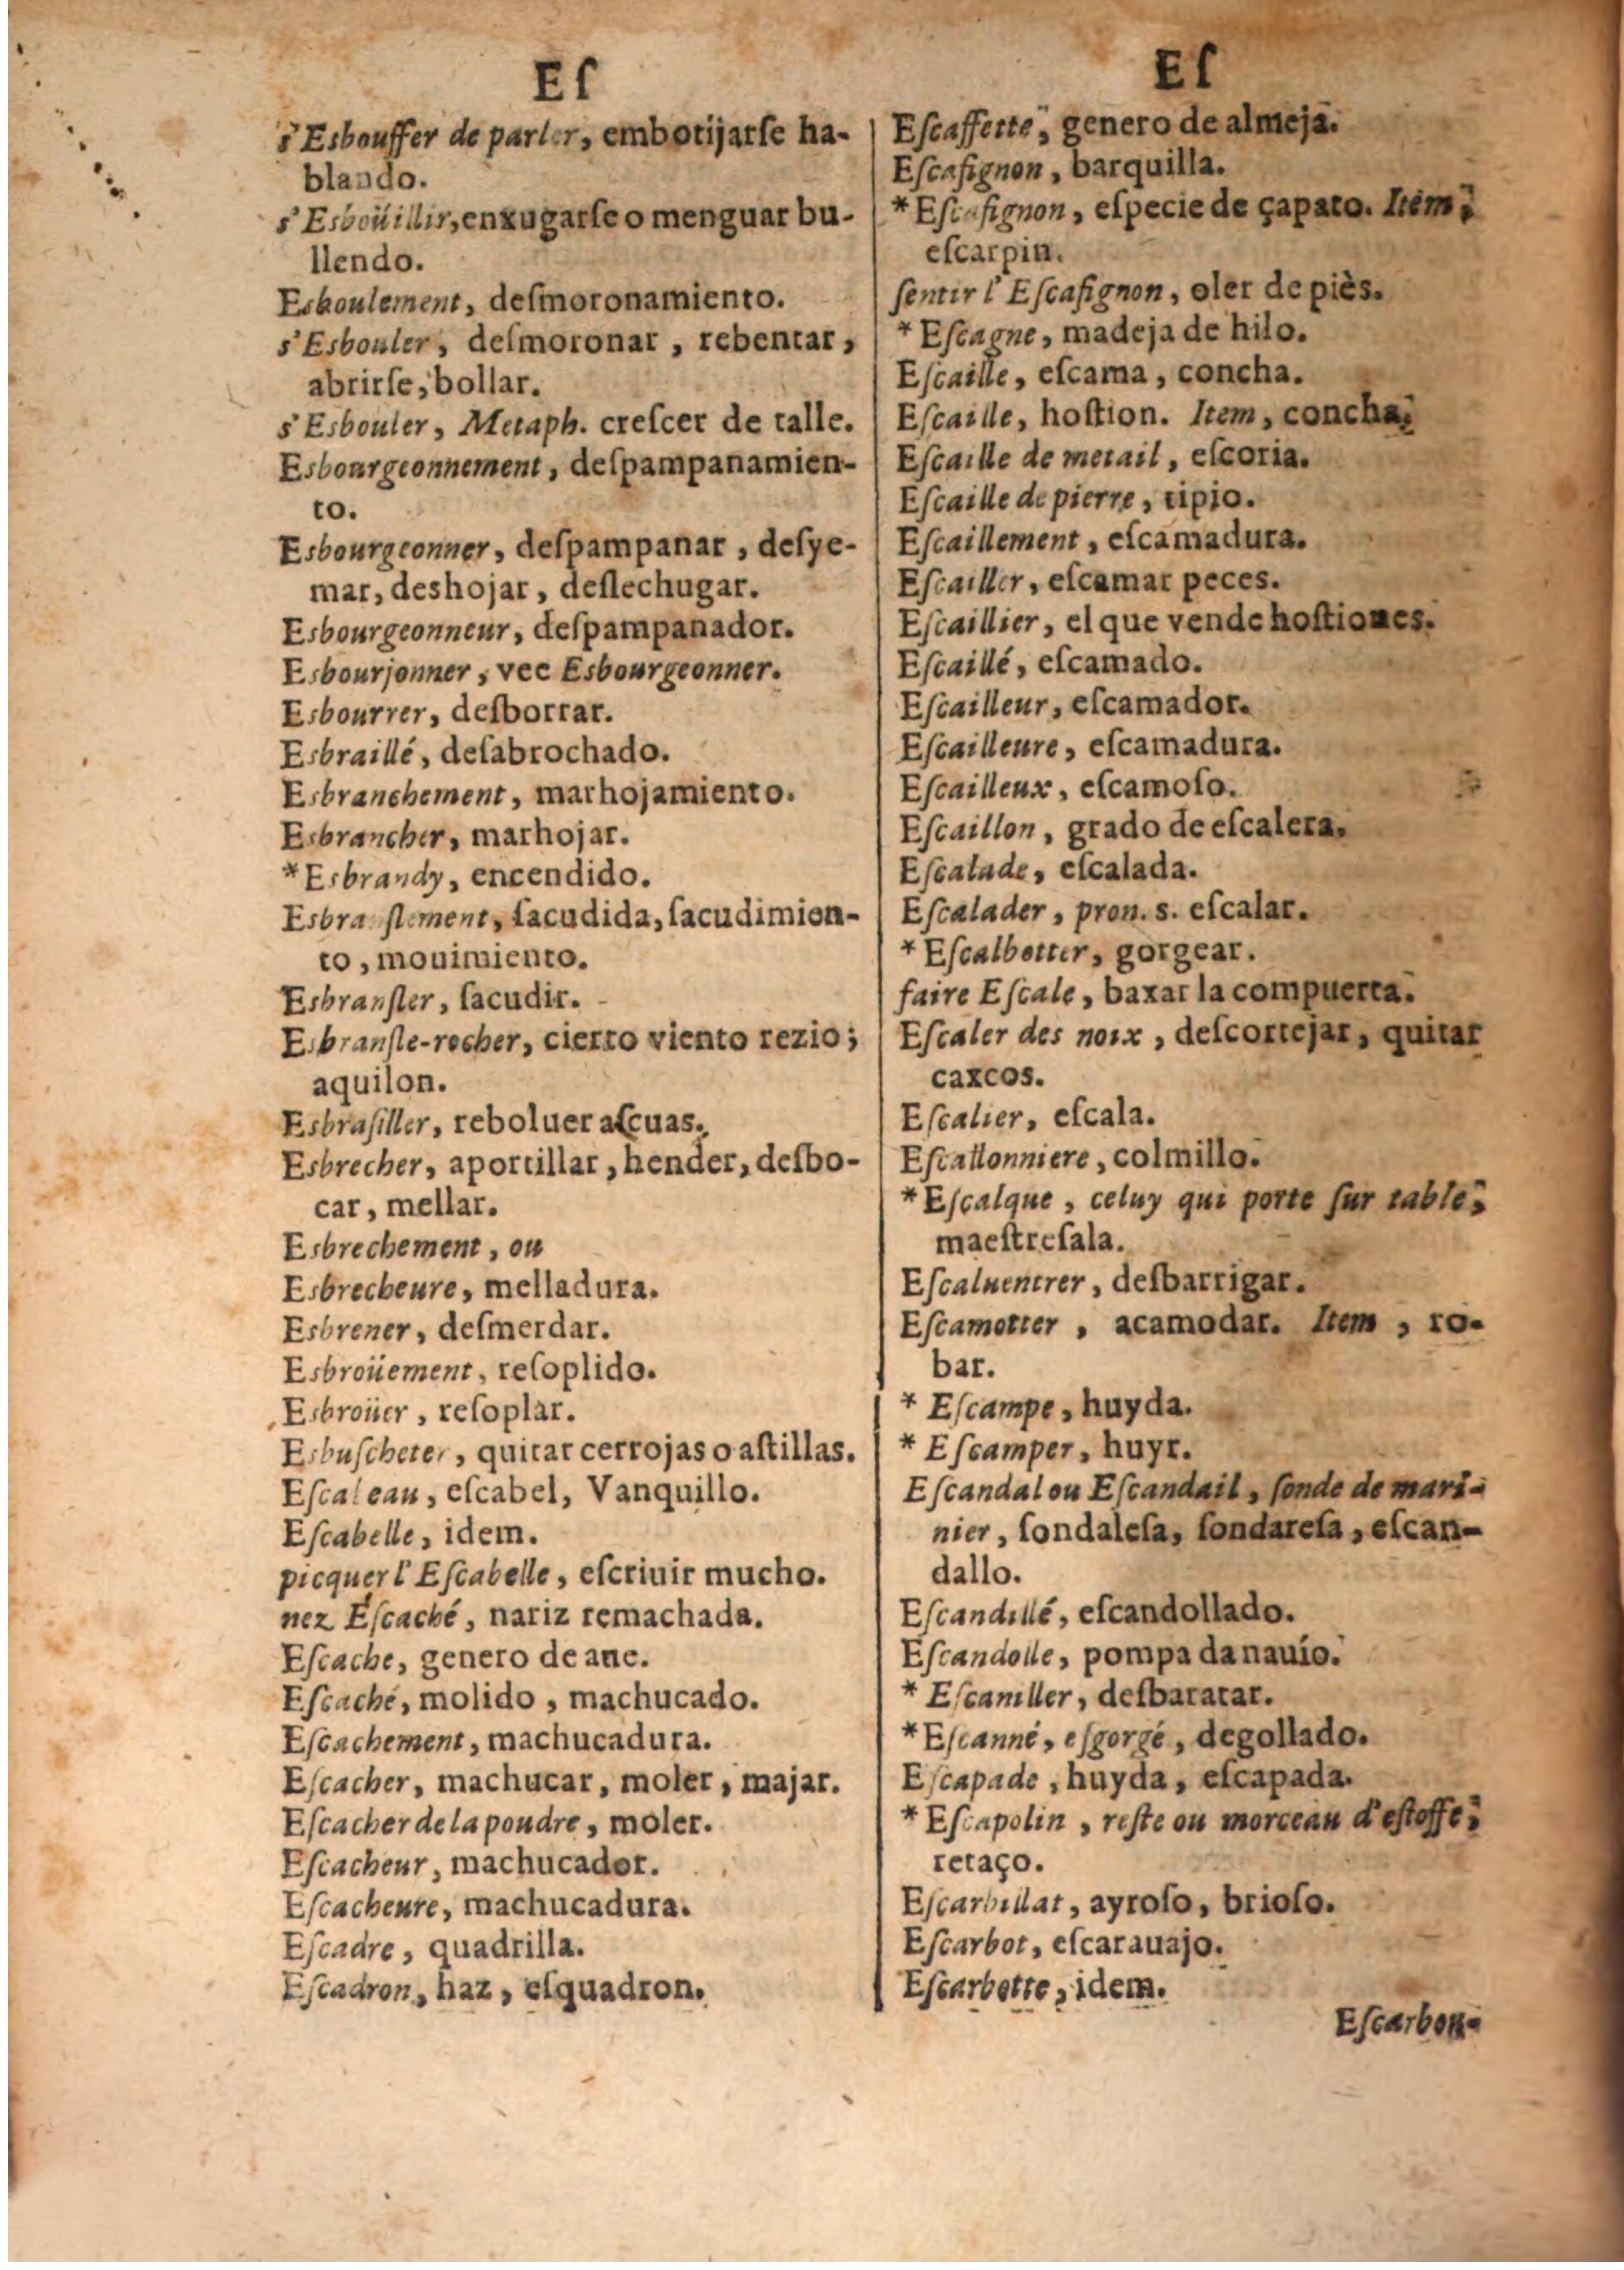 Eſ
s'Esbouffer de parler, embotijarſe ha-
blando.
s'Esboüillir, enxugarſe o menguar bu-
llendo.
Esboulement, deſmoronamiento.
s'Esbouler, deſmoronar, rebentar,
abrirſe, bollar.
s'Esbouler, Metaph. creſcer de talle.
Esbourgeonnement, deſpampanamien-
to.
Esbourgeonner, deſpampanar, deſye-
mar, deshojar, deſlechugar.
Esbourgeonneur, deſpampanador.
Esbourjonner, vee Esbourgeonner.
Esbourrer, deſborrar.
Esbraillé, deſabrochado.
Esbranchement, marhojamiento.
Esbrancher, marhojar.
*Esbrandy, encendido.
Esbranſlement, ſacudida, ſacudimien-
to, mouimiento.
Esbranſler, ſacudir.
Esbranſle-rocher, cierto viento rezio;
aquilon.
Esbraſiller, reboluer aſcuas.
Esbrecher, aportillar, hender, deſbo-
car, mellar.
Esbrechement, ou
Esbrecheure, melladura.
Esbrener, deſmerdar.
Esbroüement, reſoplido.
Esbroüer, reſoplar.
Esbuſcheter, quitar cerrojas o aſtillas.
Eſcabeau, eſcabel, Vanquillo.
Eſcabelle, idem.
picquer l'Eſcabelle, eſcriuir mucho.
nez Eſcaché, nariz remachada.
Eſcache, genero de aue.
Eſcaché, molido, machucado.
Eſcachement, machucadura.
Eſcacher, machucar, moler, majar.
Eſcacher de la poudre, moler.
Eſcacheur, machucador.
Eſcacheure, machucadura.
Eſcadre, quadrilla.
Eſcadron, haz, eſquadron.
Eſ
Eſcaffette, genero de almeja.
Eſcafignon, barquilla.
*Eſcafignon, eſpecie de çapato. Item,
eſcarpin.
ſentir l'Eſcafignon, oler de piès.
*Eſcagne, madeja de hilo.
Eſcaille, eſcama, concha.
Eſcaille, hoſtion. Item, concha.
Eſcaille de metail, eſcoria.
Eſcaille de pierre, tipio.
Eſcaillement, eſcamadura.
Eſcailler, eſcamar peces.
Eſcaillier, el que vende hoſtiones.
Eſcaillé, eſcamado.
Eſcailleur, eſcamador.
Eſcailleure, eſcamadura.
Eſcailleux, eſcamoſo.
Eſcaillon, grado de eſcalera.
Eſcalade, eſcalada.
Eſcalader, pron. s. eſcalar.
*Eſcalbotter, gorgear.
faire Eſcale, baxar la compuerta.
Eſcaler des noix, deſcortejar, quitar
caxcos.
Eſcalier, eſcala.
Eſcallonniere, colmillo.
*Eſcalque, celuy qui porte ſur table,
maeſtreſala.
Eſcaluentrer, deſbarrigar.
Eſcamotter, acamodar. Item, ro-
bar.
* Eſcampe, huyda.
* Eſcamper, huyr.
Eſcandal ou Eſcandail, ſonde de mari-
nier, ſondaleſa, ſondareſa, eſcan-
dallo.
Eſcandillé, eſcandollado.
Eſcandolle, pompa da nauío.
* Eſcaniller, deſbaratar.
*Eſcanné, eſgorgé, degollado.
Eſcapade, huyda, eſcapada.
*Eſcapolin, reſte ou morceau d'eſtoffe,
retaço.
Eſcarbillat, ayroſo, brioſo.
Eſcarbot, eſcarauajo.
Eſcarbotte, idem.
Eſcarbou-